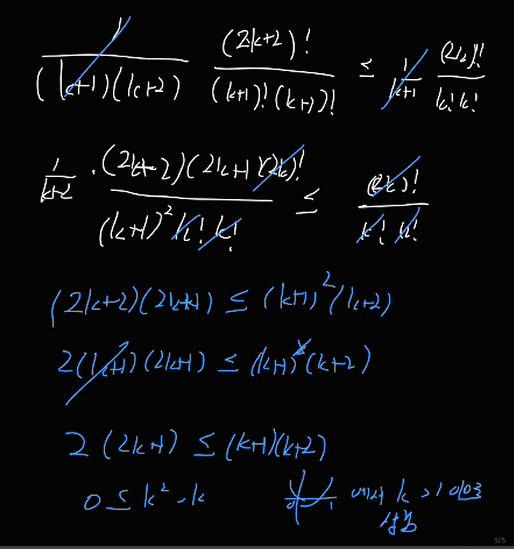 1/((k+1)(k+2)) (2k+2)!/((k+1)!(k+1)!) ≤ 1/(k+1) (2k)!/(k!k!)
1/(k+2) · (2k+2)(2k+1)(2k)!/((k+1)²k!k!) ≤ (2k)!/(k!k!)
(2k+2)(2k+1) ≤ (k+1)²(k+2)
2(k+1)(2k+1) ≤ (k+1)²(k+2)
2(2k+1) ≤ (k+1)(k+2)
0 ≤ k² - k
0 1 에서 k>1 이므로
성립
5/5